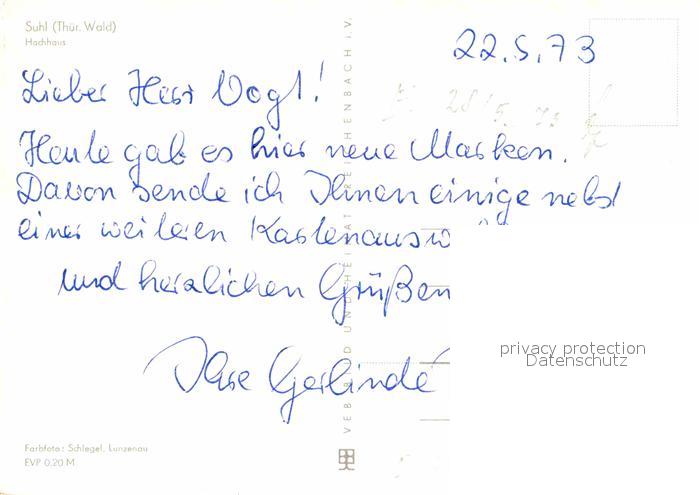 Suhl (Thür. Wald)
Hochhaus
22.5.73
Lieber Herr Vogt!
Heute gab es hier neue Marken.
Davon sende ich Ihnen einige nebst
einer weiteren Kartenausw
und herzlichen Grüßen
Ihre Gerlinde
VEB BILD UND HEIMAT REICHENBACH i. V.
privacy protection
Datenschutz
Farbfoto: Schlegel, Lunzenau
EVP 0,20 M